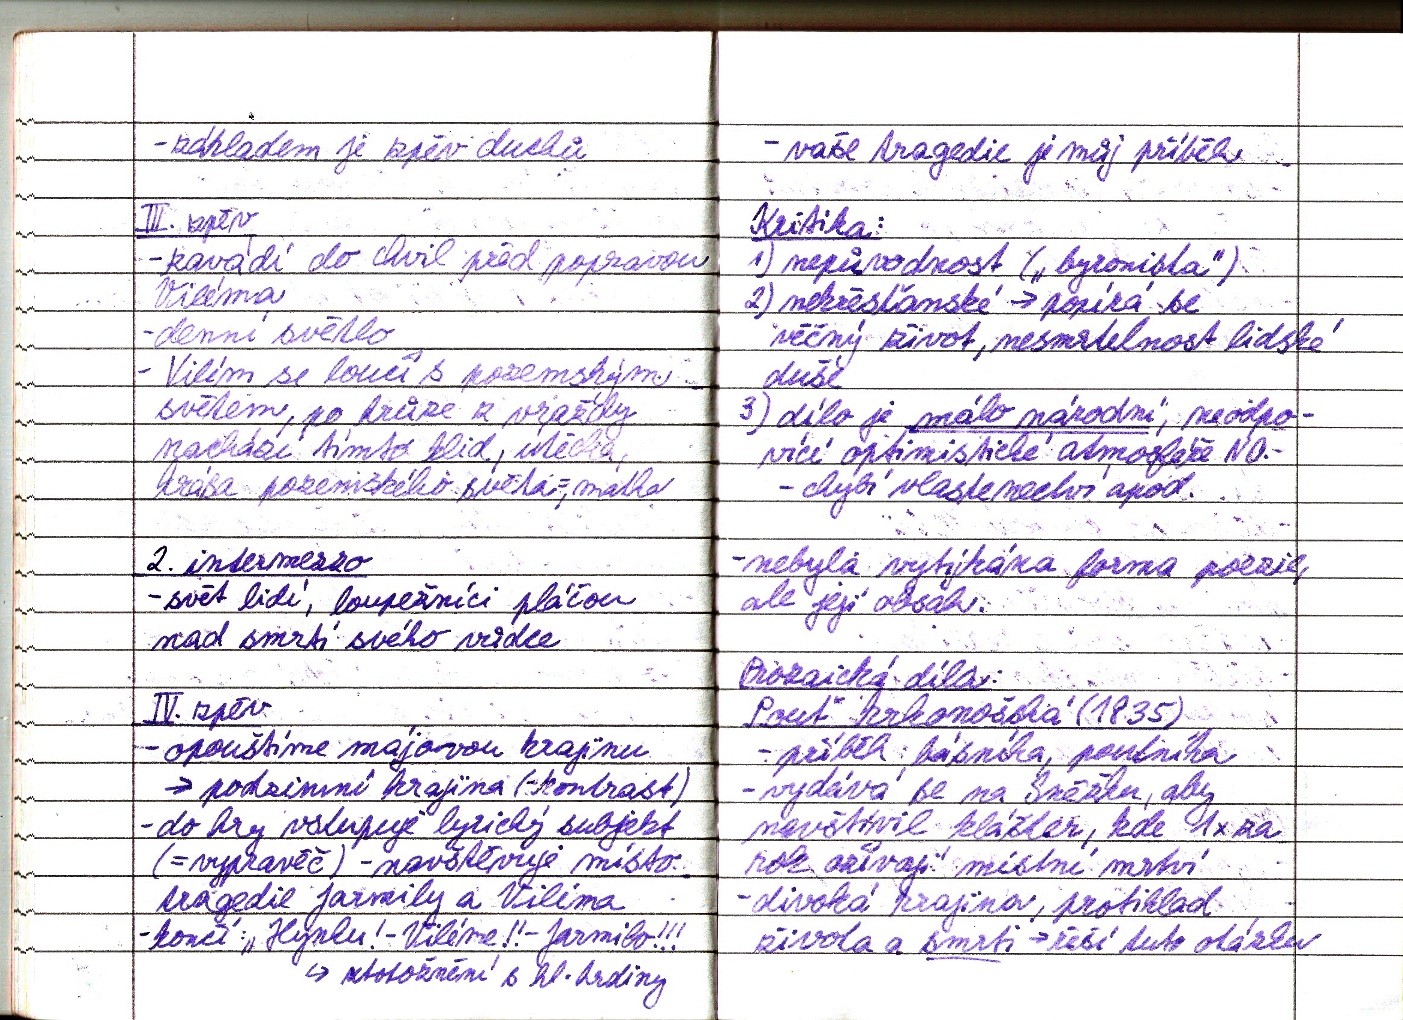 - základem je zpěv duchů
III. zpěv
- zavádí do chvil před popravou
Viléma
- denní světlo
- Vilém se loučí s pozemským
světem, po hrůze z vraždy
nachází tímto klid, útěcha,
krása pozemského světa =, matka
2. intermezzo
- svět lidí, loupežníci pláčou
nad smrtí svého vůdce
IV. zpěv
- opouštíme májovou krajinu
→ podzimní krajina (- kontrast)
- do hry vstupuje lyrický subjekt
(= vypravěč) - navštěvuje místo
tragedie Jarmily a Viléma
- končí: „Hynku! - Viléme!! - Jarmilo!!!
↳ ztotožnění s hl. hrdiny
- vaše tragedie je můj příběh
Kritika:
1) nepůvodnost („byronista“)
2) nekřesťanské → popírá se
věčný život, nesmrtelnost lidské
duše
3) dílo je málo národní, neodpo-
vící optimistické atmosféře NO.-
- chybí vlastenectví apod.
- nebyla vytýkána forma poezie,
ale její obsah.
Prozaická díla:
Pouť krkonošská (1835)
- příběh básníka, poutníka
- vydává se na Sněžku, aby
navštívil klášter, kde 1x za
rok ožívají místní mrtví
- divoká krajina, protiklad
života a smrti → řeší tuto otázku